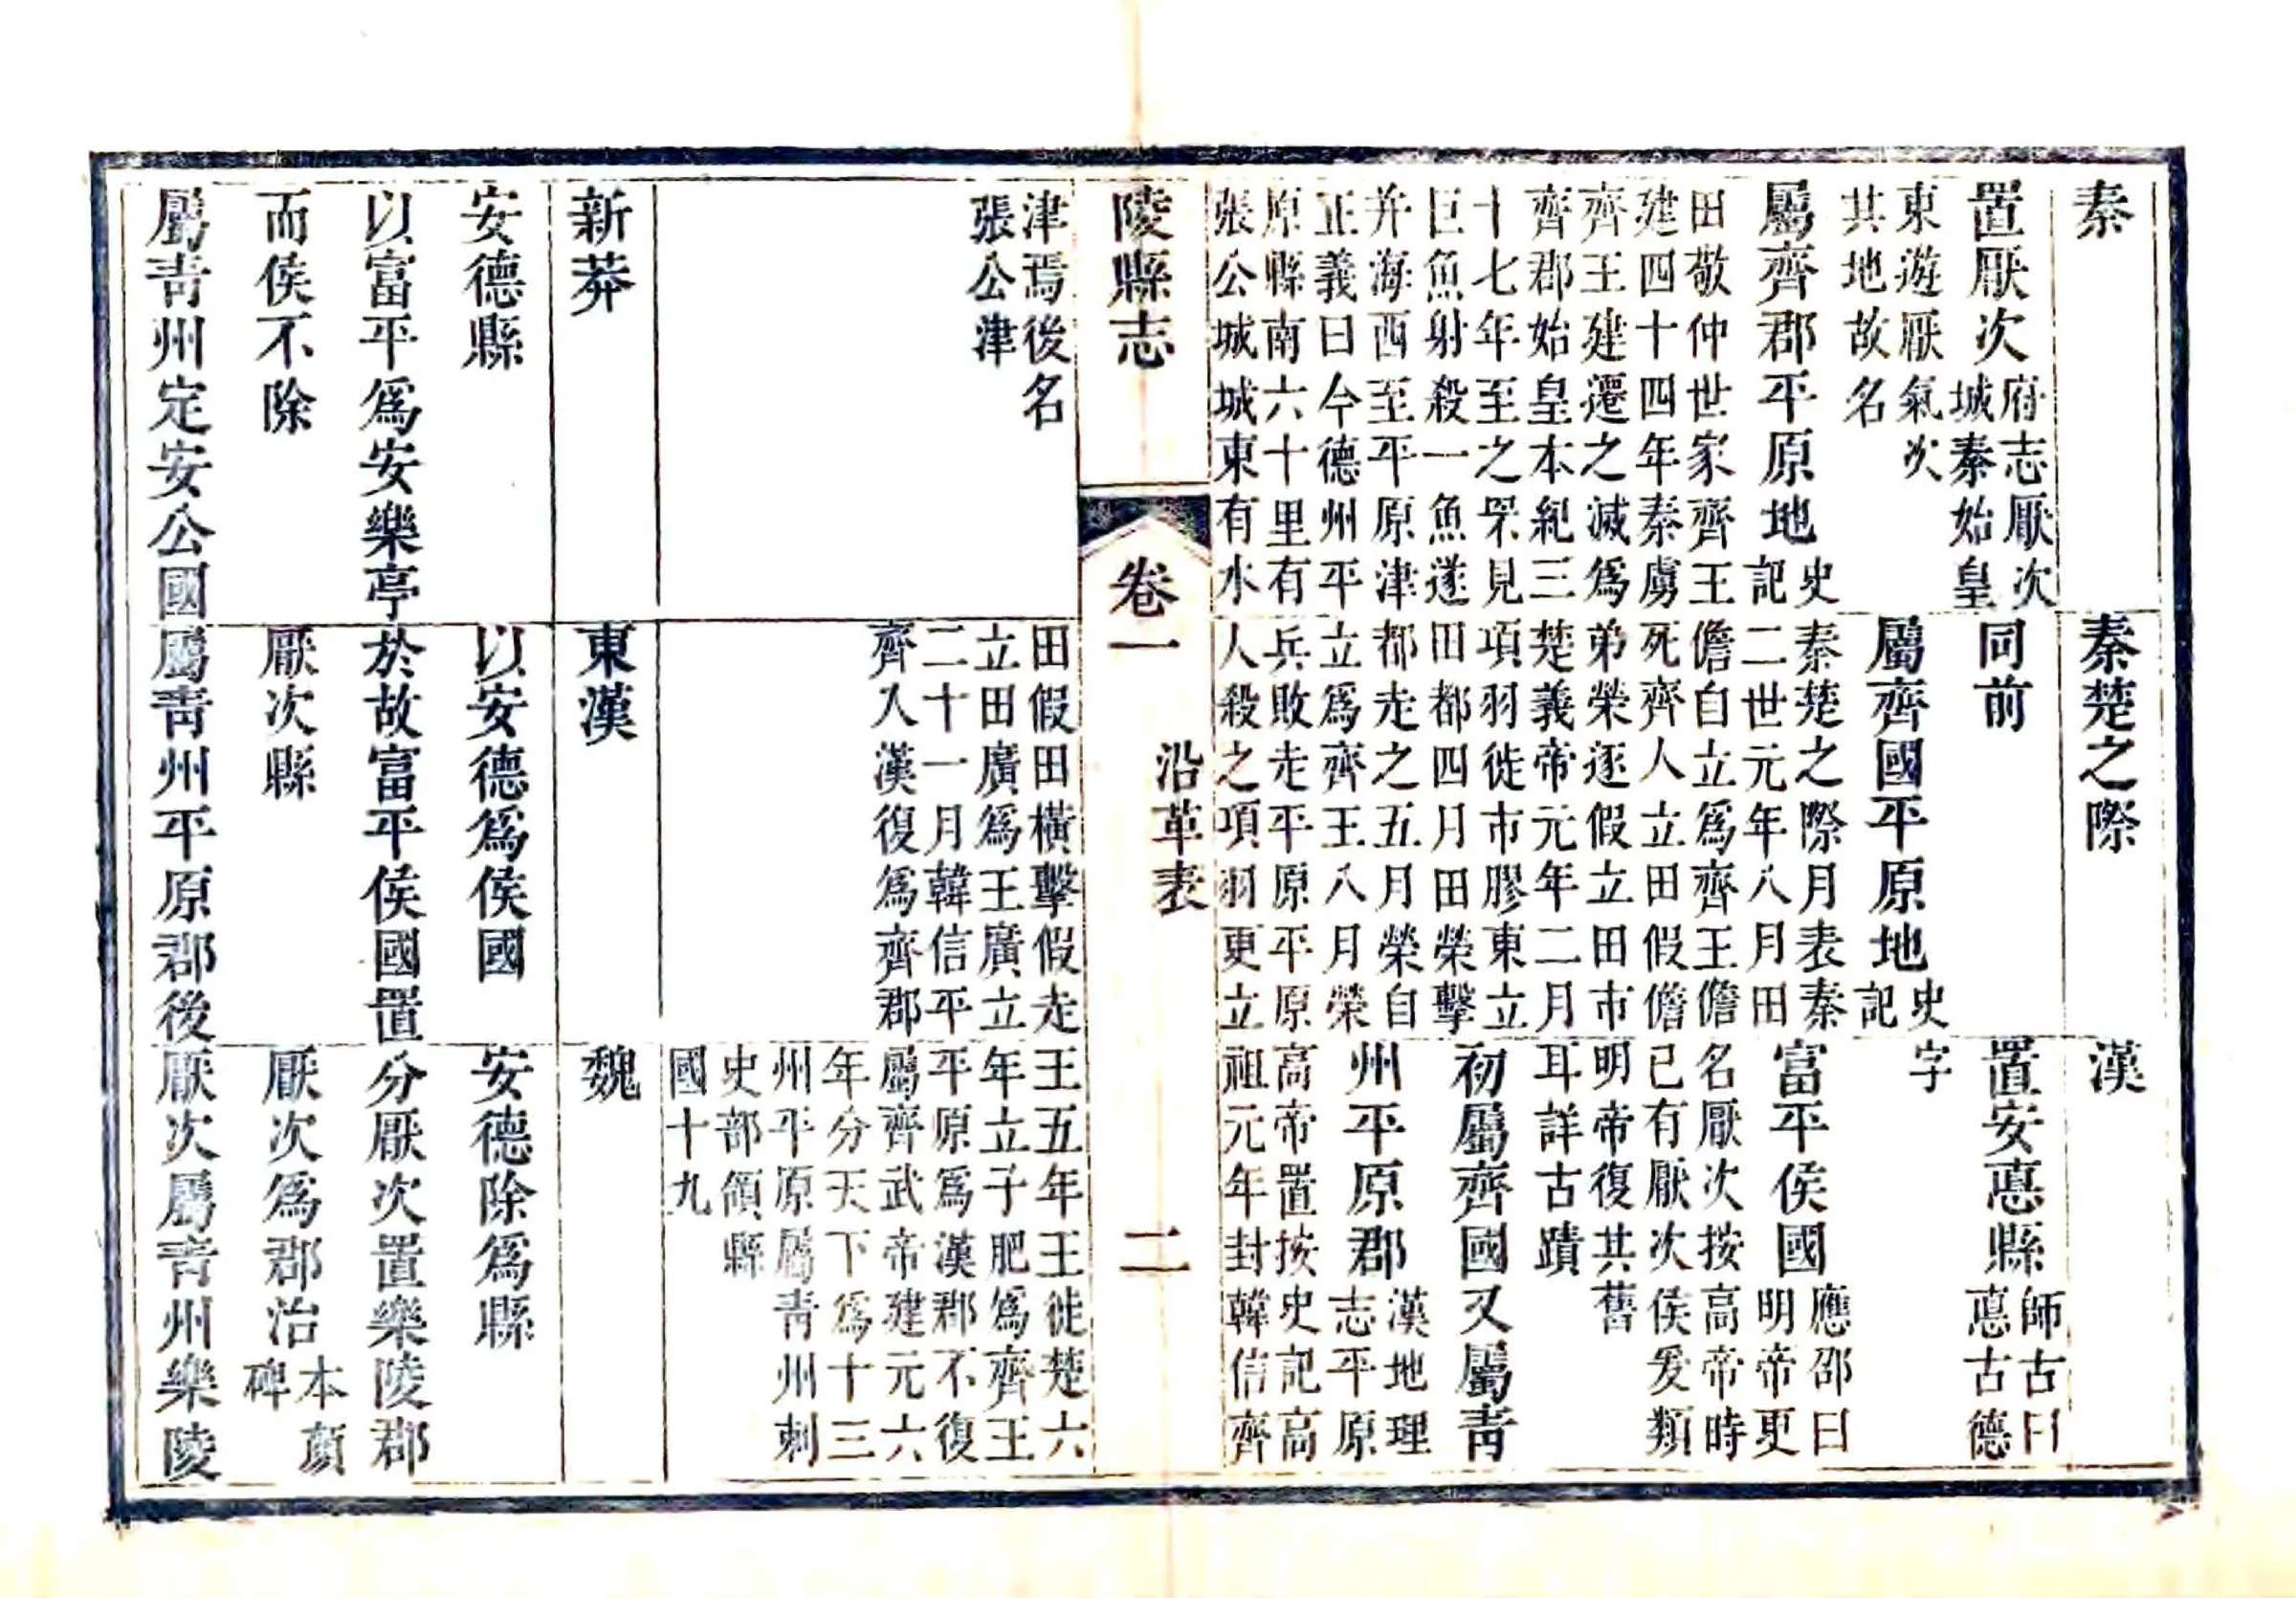 秦
置厭次
府志厭次
城秦始皇
東遊厭氣次
其地故名
屬齊郡平原地
史
記
田敬仲世家齊王
建四十四年秦虜
齊王建遷之滅爲
齊郡始皇本紀三
十七年至之罘見
巨魚射殺一魚遂
并海西至平原津
正義曰今德州平
原縣南六十里有
張公城城東有水
津焉後名
張公津
秦楚之際
同前
屬齊國平原地
史
記
秦楚之際月表秦
二世元年八月田
儋自立爲齊王儋
死齊人立田假儋
弟榮逐假立田市
楚義帝元年二月
項羽徙市膠東立
田都四月田榮擊
都走之五月榮自
立爲齊王八月榮
兵敗走平原平原
人殺之項羽更立
田假田橫擊假走
立田廣爲王廣立
二十一月韓信平
齊入漢復爲齊郡
漢
置安悳縣
師古曰
悳古德
字
富平侯國
應邵曰
明帝更
名厭次按高帝時
已有厭次侯爰類
明帝復其舊
耳詳古蹟
初屬齊國又屬青
州平原郡
漢地理
志平原
高帝置按史記高
祖元年封韓信齊
王五年王徙楚六
年立子肥爲齊王
平原爲漢郡不復
屬齊武帝建元六
年分天下爲十三
州平原屬青州刺
史部領縣
國十九
陵縣志
卷一
沿革表
二
新莽
安德縣
以富平爲安樂亭
而侯不除
屬青州定安公國
東漢
以安德爲侯國
於故富平侯國置
厭次縣
屬青州平原郡後
魏
安德除爲縣
分厭次置樂陵郡
厭次爲郡治
本顏
碑
厭次屬青州樂陵